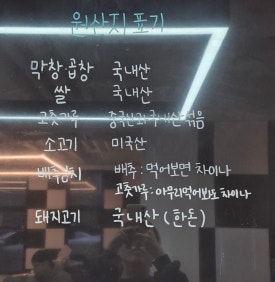 원산지 표기
막창·곱창 국내산
쌀 국내산
고춧가루 중국산과 국내산 섞음
소고기 미국산
배추김치 배추 : 먹어보면 차이나
고춧가루 : 아무리먹어봐도 차이나
돼지고기 국내산 (한돈)